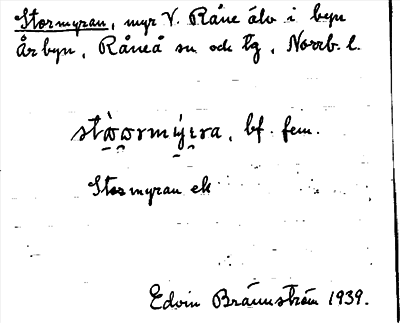 Stormyran, myr V. Råne älv i byn
Årbyn, Råneå sn och tg, Norrb. l.
stòormýɩra, bf. fem.
Stormyran ek
Edvin Brännström 1939.